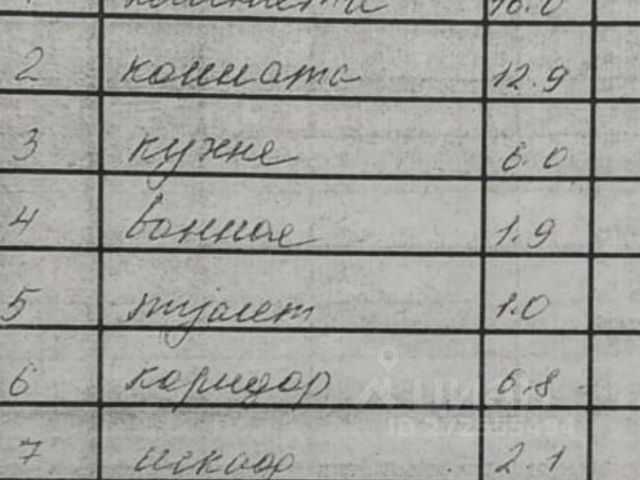 2 комната 12.9
3 кухня 6.0
4 ванная 1.9
5 туалет 1.0
6 коридор 6.8
7 шкаф 2.1
ЦИАН
ID 272555434